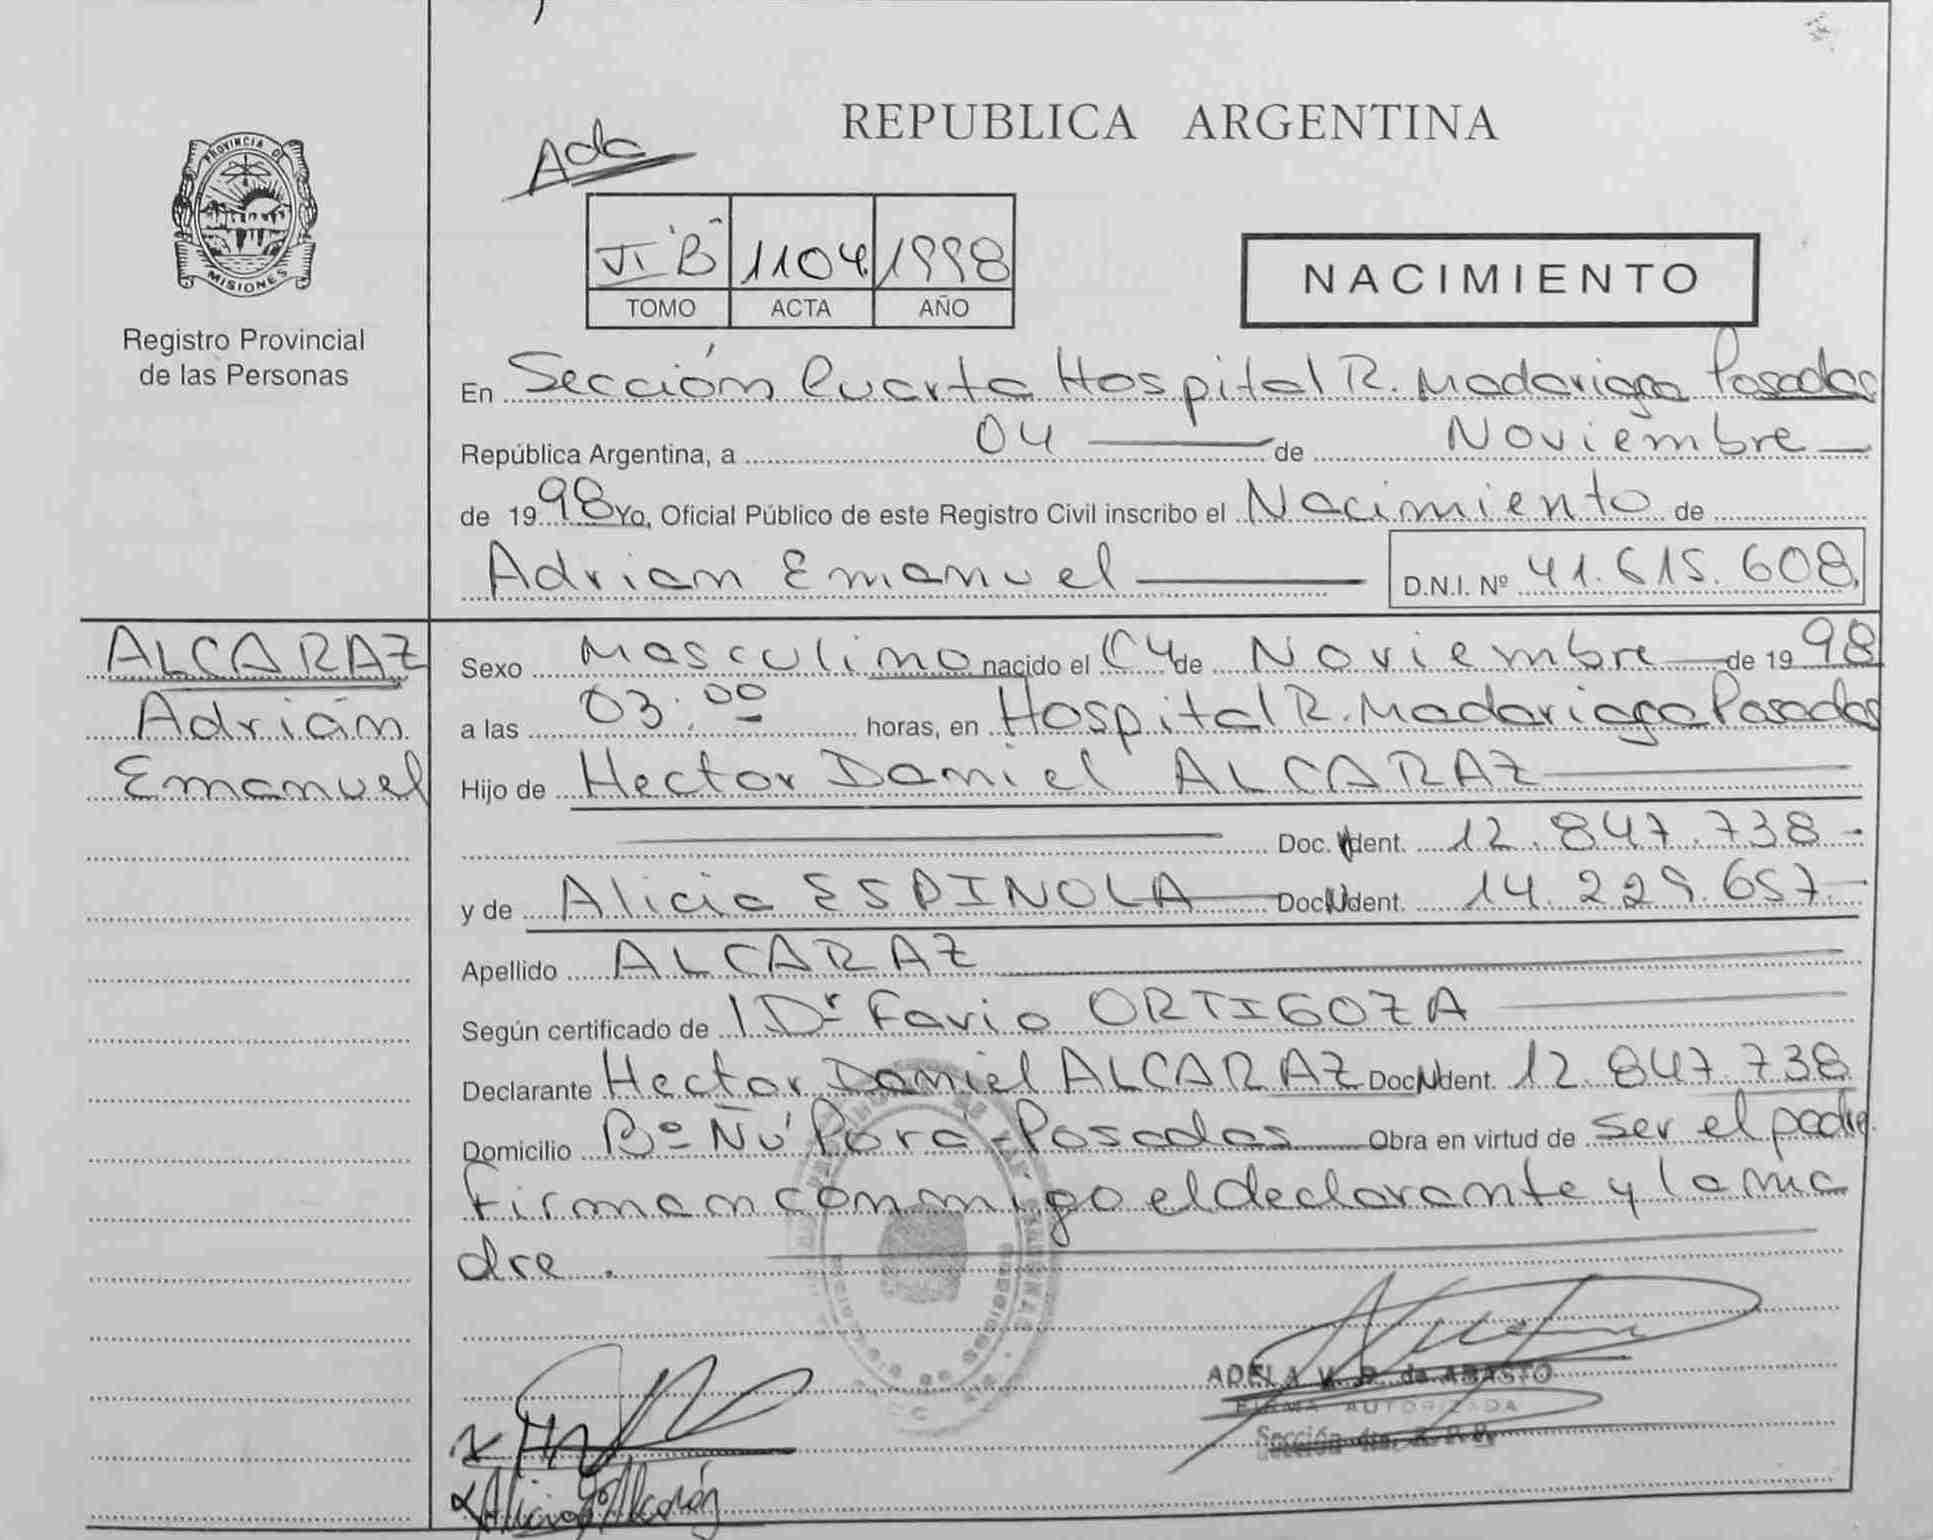 PROVINCIA DE
MISIONES
Registro Provincial
de las Personas
REPUBLICA ARGENTINA
VI "B" 1104 1998
TOMO ACTA AÑO
NACIMIENTO
En Sección Cuarta Hospital R. Madariaga Posadas
República Argentina, a 04 de Noviembre
de 1998 Yo, Oficial Público de este Registro Civil inscribo el Nacimiento de
Adrian Emanuel D.N.I. Nº 41.615.608
ALCARAZ
Adrián
Emanuel
Sexo Masculino nacido el 04 de Noviembre de 1998
a las 03:00 horas, en Hospital R. Madariaga Posadas
Hijo de Hector Daniel ALCARAZ
Doc. Ident. 12.847.738.-
y de Alicia ESPINOLA Doc. Ident. 14.229.657.-
Apellido ALCARAZ
Según certificado de Dr Favio ORTIGOZA
Declarante Hector Daniel ALCARAZ Doc. Ident. 12.847.738
Domicilio Bº Ñu Porá - Posadas Obra en virtud de ser el padre.
Firman conmigo el declarante y la ma
dre.
ADELA de ABASTO
FIRMA AUTORIZADA
Sección